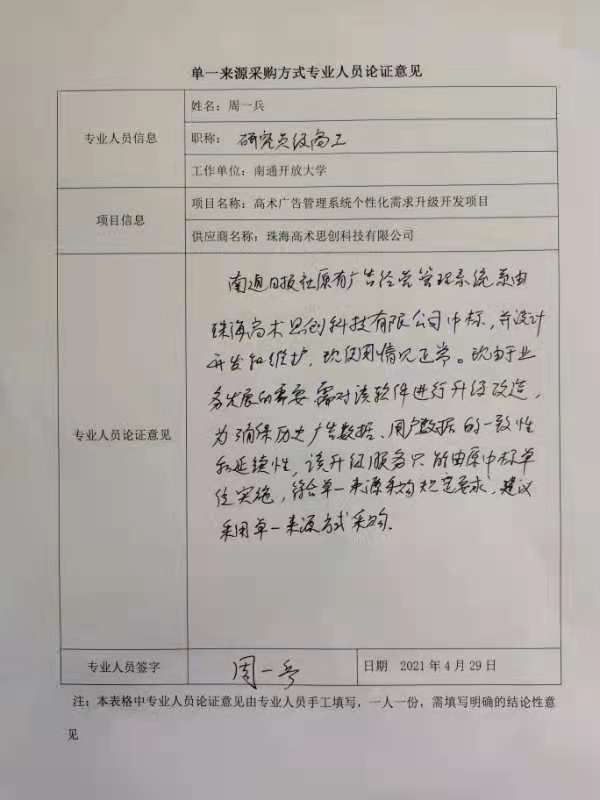 单一来源采购方式专业人员论证意见
专业人员信息
姓名：周一兵
职称：研究员级高工
工作单位：南通开放大学
项目信息
项目名称：高术广告管理系统个性化需求升级开发项目
供应商名称：珠海高术思创科技有限公司
专业人员论证意见
南通日报社原有广告经营管理系统系由
珠海高术思创科技有限公司中标，并设计
开发和维护，现使用情况正常。现由于业
务发展的需要需对该软件进行升级改造，
为确保历史广告数据、用户数据的一致性
和延续性，该升级服务只能由原中标单
位实施，符合单一来源采购规定要求，建议
采用单一来源方式采购.
专业人员签字
周一兵
日期 2021年4月29日
注：本表格中专业人员论证意见由专业人员手工填写，一人一份，需填写明确的结论性意
见